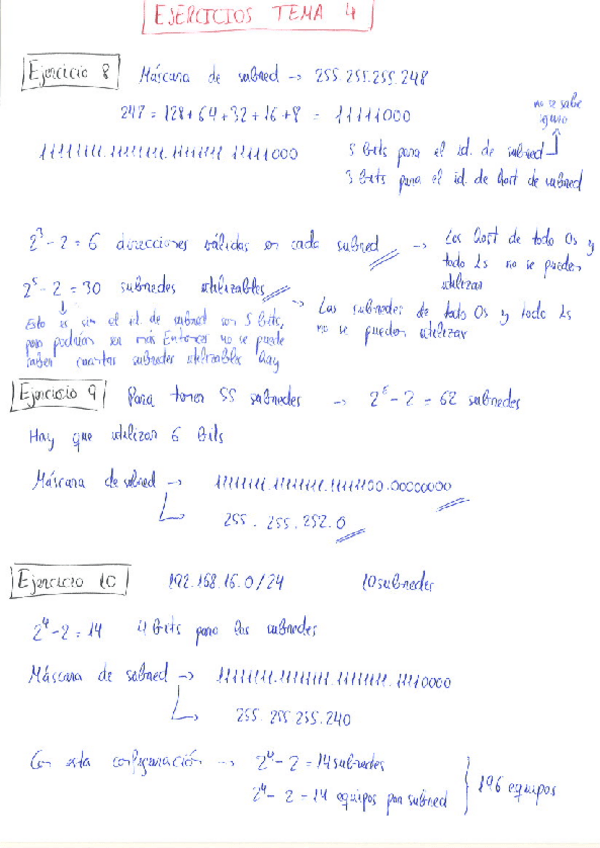 EJERCICIOS TEMA 4
Ejercicio 8 Máscara de subred → 255.255.255.248
247 = 128+64+32+16+8 = 11111000
no se sabe
seguro
11111111.11111111.11111111.11111000 5 bits para el id. de subred
3 bits para el id. de host de subred
2³-2=6 direcciones válidas en cada subred → Los host de todo 0s y
todo 1s no se pueden
utilizar
2⁵-2=30 subredes utilizables → Las subredes de todo 0s y todo 1s
no se pueden utilizar
Esto es si el id. de subred son 5 bits,
pero podrían ser más. Entonces no se puede
saber cuantas subredes utilizables hay
Ejercicio 9 Para tener 55 subredes → 2⁶-2 = 62 subredes
Hay que utilizar 6 bits
Máscara de subred → 11111111.11111111.11111100.00000000
255.255.252.0
Ejercicio 10 192.168.16.0/24 10 subredes
2⁴-2=14 4 bits para las subredes
Máscara de subred → 11111111.11111111.11111111.11110000
255.255.255.240
Con esta configuración → 2⁴-2=14 subredes
2⁴-2=14 equipos por subred
196 equipos